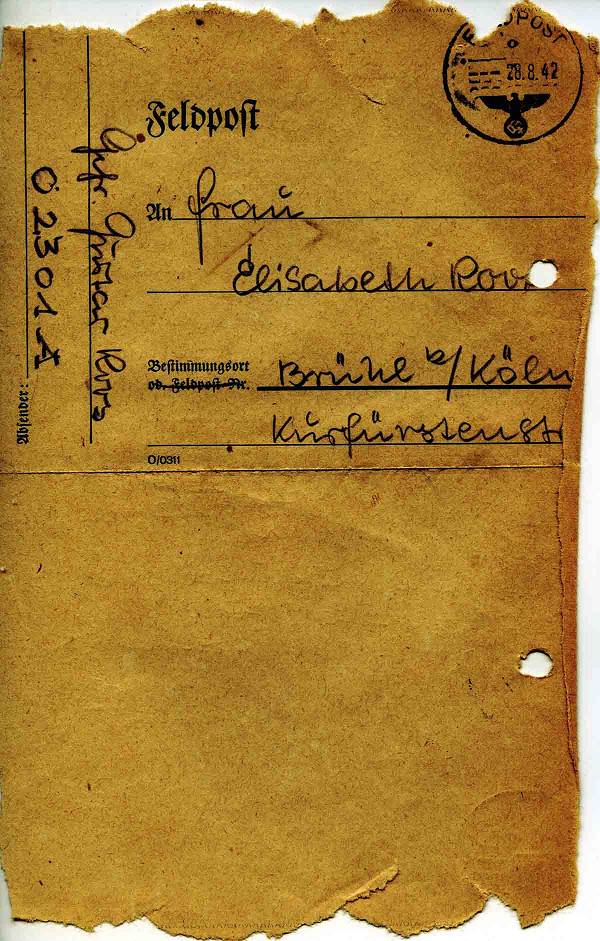 FELDPOST
28.8.42
Feldpost
An Frau
Elisabeth
Bestimmungsort
od. Feldpost-Nr.
Brühl b/Köln
Kurfürstenstr
O/0311
Absender:
Gefr. Gustav
02301 A